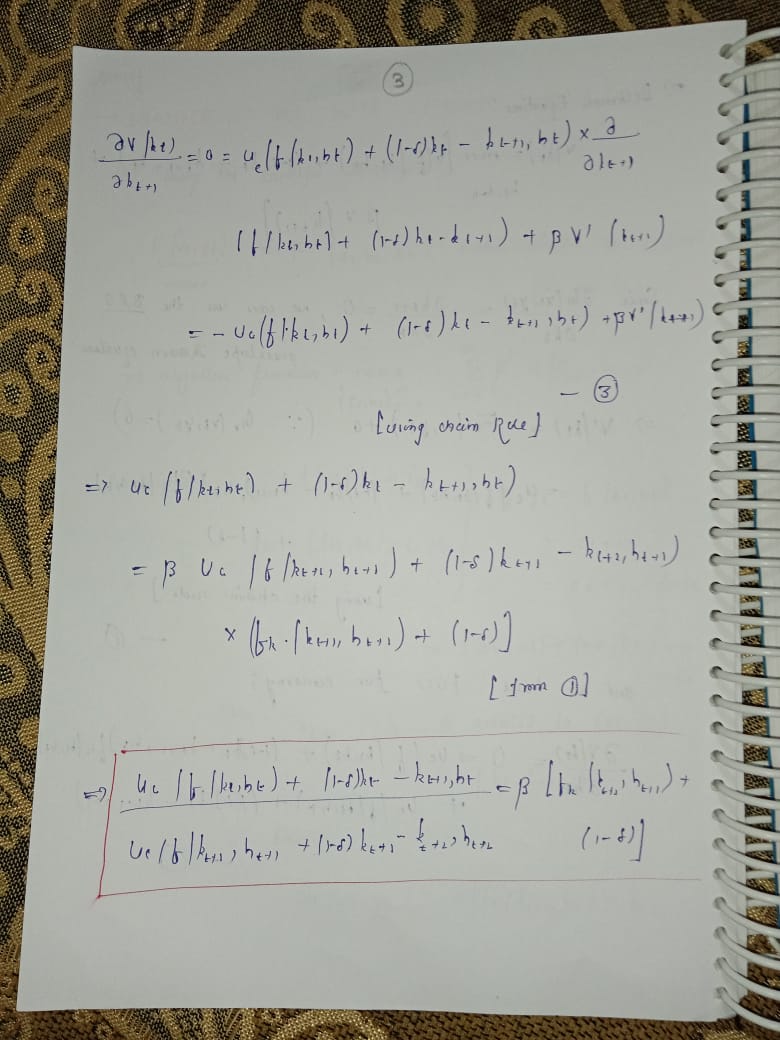 ③
∂V(kt)/∂kt+1 = 0 = uc(f(kt,ht) + (1-δ)kt - kt+1, ht) × ∂/∂kt+1
[f(kt,ht) + (1-δ)kt - kt+1) + β V' (kt+1)
= - uc(f(kt,ht) + (1-δ)kt - kt+1, ht) + βV'(kt+1)
- ③
[using chain Rule]
=> uc (f(kt,ht) + (1-δ)kt - kt+1, ht)
= β uc (f(kt+1, ht+1) + (1-δ)kt+1 - kt+2, ht+1)
× (fk.(kt+1, ht+1) + (1-δ)]
[from ①]
=> uc (f.(kt,ht) + (1-δ)kt - kt+1, ht / uc (f(kt+1, ht+1 + (1-δ) kt+1 - kt+2, ht+2 = β [fk (kt+1, ht+1) +
(1-δ)]